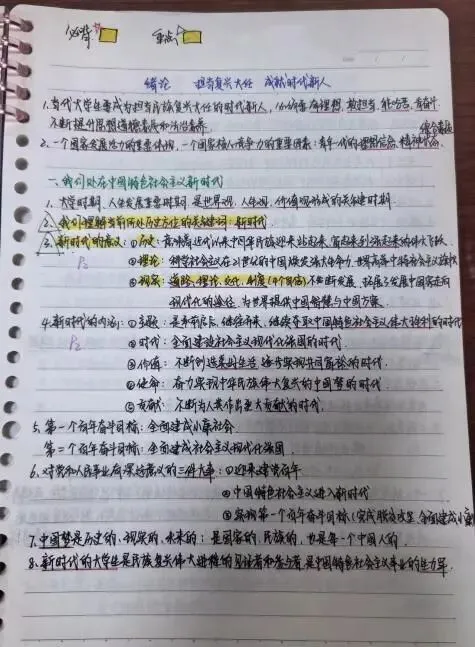 必背 重点
绪论 担当复兴大任 成就时代新人
1.当代大学生要成为担当民族复兴大任的时代新人,必须要有理想、敢担当、能吃苦、肯奋斗
不断提升思想道德素质和法治素养.
2.一个国家发展活力的重要体现,一个国家核心竞争力的重要因素:青年一代的理想信念、精神状态、综合素质
一、我们处在中国特色社会主义新时代
1.大学时期,人生发展重要时期,是世界观、人生观、价值观形成的关键时期.
2.我们理解当前所处历史方位的关键词:新时代
3.新时代的意义:①历史:意味着近代以来中华民族迎来站起来、富起来到强起来的伟大飞跃.
P2 ②理论:科学社会主义在21世纪的中国焕发强大生命力,世界高举中特社会主义旗帜
③现实:道路、理论、文化、制度(4个自信)不断发展,拓展了发展中国家走向
现代化的途径,为世界提供中国智慧与中国方案.
4.新时代的内涵:①主题:是承前启后、继往开来、继续夺取中国特色社会主义伟大胜利的时代
P2 ②时代:全面建设社会主义现代化强国的时代.
③价值:不断创造美好生活、逐步实现共同富裕的时代.
④使命:奋力实现中华民族伟大复兴的中国梦的时代.
⑤贡献:不断为人类作出更大贡献的时代.
5.第一个百年奋斗目标:全面建成小康社会.
第二个百年奋斗目标:全面建成社会主义现代化强国.
6.对党和人民事业有深远意义的三件大事:①迎来建党百年
②中国特色社会主义进入新时代
③实现第一个百年奋斗目标(完成脱贫攻坚、全面建成小康
7.中国梦是历史的、现实的、未来的;是国家的、民族的,也是每一个中国人的.
8.新时代的大学生是民族复兴伟大进程的见证者和参与者,是中国特色社会主义事业的生力军.